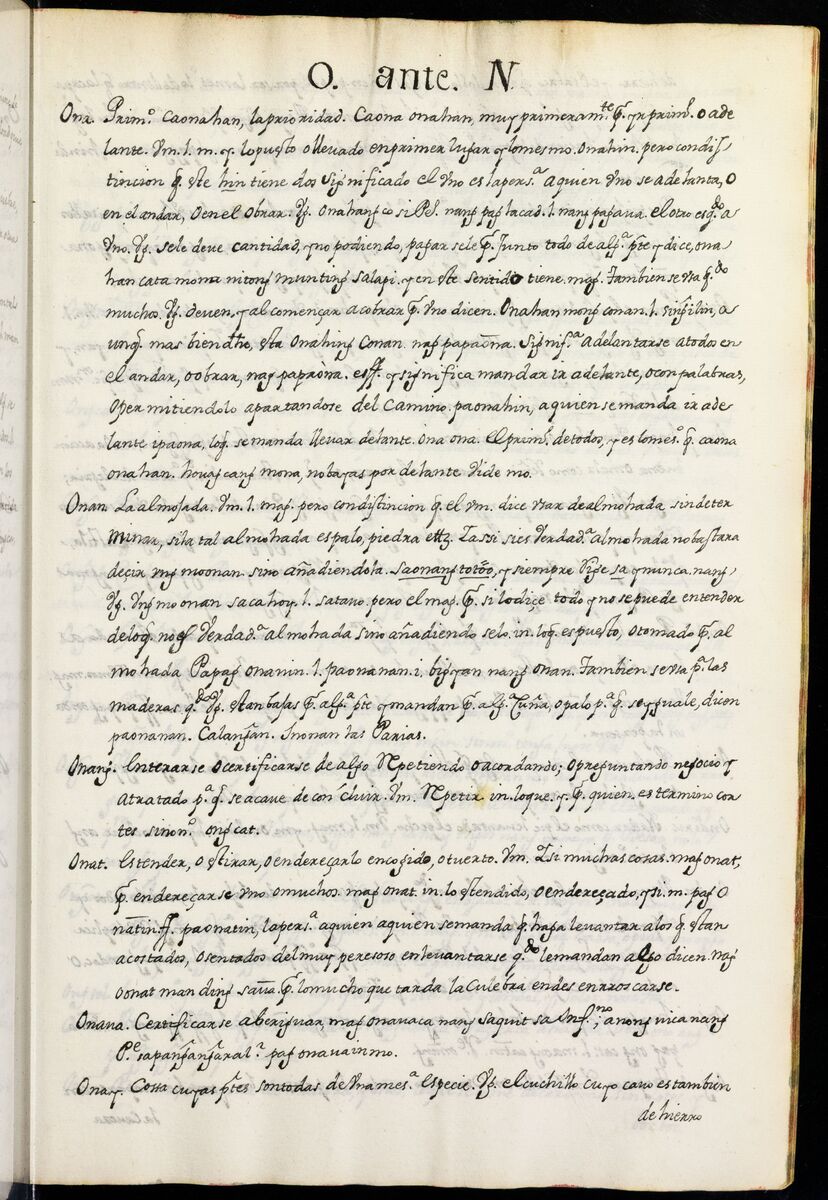 O. ante. N
Ona. Prim.º Caonahan, la prioridad. Caona onahan, muy primeram.te p.ª yr prim.º o ade
lante. Vm. l. m. y. lo puesto o llevado en primer lugar y lo mesmo. onahin. pero con dis
tincion q. este hin tiene dos significado el vno es la pers.ª a quien vno se adelanta, o
en el andar, o en el obrar. Vg. onahang co si P.e nang pag lacad. l. nang pag gava. el otro es q.do a
Vno. Vg. se le deve cantidad, y no podiendo, pagar sele p. Junto todo de alg.ª p.te y dice, ona
han cata moma nitong munting salapi. y en este sentido tiene. mag. Tambien se vsa q.do
muchos. Vg. deven, y al començar a cobrar p. vno dicen. Onahan mong conan. l. singilin, a
unq. mas bien dhe, sta onahing Conan. nag papaona. Signif.ª adelantarse a todos en
el andar, o obrar, nag papaòna. est. y significa mandar ir adelante, o con palabras,
o permitiendolo apartandose del camino. paonahin, a quien se manda ir ade
lante ipaona, loq. se manda llevar delante. Ona ona. el prim.º de todos, y es lo mes.º q. caona
onahan. houag cang mona, no bayas por delante Vide mo.
Onan. La almojada. Vm. l. mag. pero con distincion q. el vm. dice vsar de almohada sin deter
minar, si la tal almohada es palo, piedra ettz. Y assi si es Verdad.ª almohada no bastara
decir vng moonan. sino añadiendola. sa onang totoo, y siempre Rige sa y nunca nang,
Vg. Vng mo onan sa cahoy. l. sa tavo. pero el mag. p. si lo dice todo y no se puede entender
de loq. no es Verdad.ª almohada sino añadiendo selo. in. loq. es puesto, o tomado p. al
mohada Papag onanin. l. paonanan. i. bigyan nang onan. Tambien se vsa p.ª las
maderas q.do Vg. stan bajas p. alg.ª p.te y mandan p. alg.ª Cuña, o palo p.ª q. se yguale, dicen
paonanan. Calangan. Inonan las Parias.
Onang. Enterarse o certificarse de algo Repetiendo o acordando; o preguntando negocio y
a tratado p.ª q. se acave de con cluir. Vm. Repetir. in. loque. y. p. quien. es termino cor
tes sinon.º ongcat.
Onat. Estender, o stirar, o endereçar lo encogido, o tuerto. Vm. Y si muchas cosas. mag onat,
p. endereçarse vno o muchos. mag onat. in. lo stendido, o endereçado, y si. m. pag o
natin. ff. paonatin, la pers.ª a quien a quien se manda q. haga levantar a los q. stan
acostados, o sentados del muy peresoso en levantarse q.do le mandan algo dicen. nag
oonat man ding sava p. lo mucho que tarda la culebra en des enrroscarse.
Onava. Certificarse aberiguar, mag onavaca nang saquit sa Inf.no; anong vica nang
P.e sa pangangaral.ª pag onavain mo.
Onay. Cossa cuyas p.tes son todas de vna mes.ª especie. Vg. el cuchillo cuyo cavo es tambien
de hierro